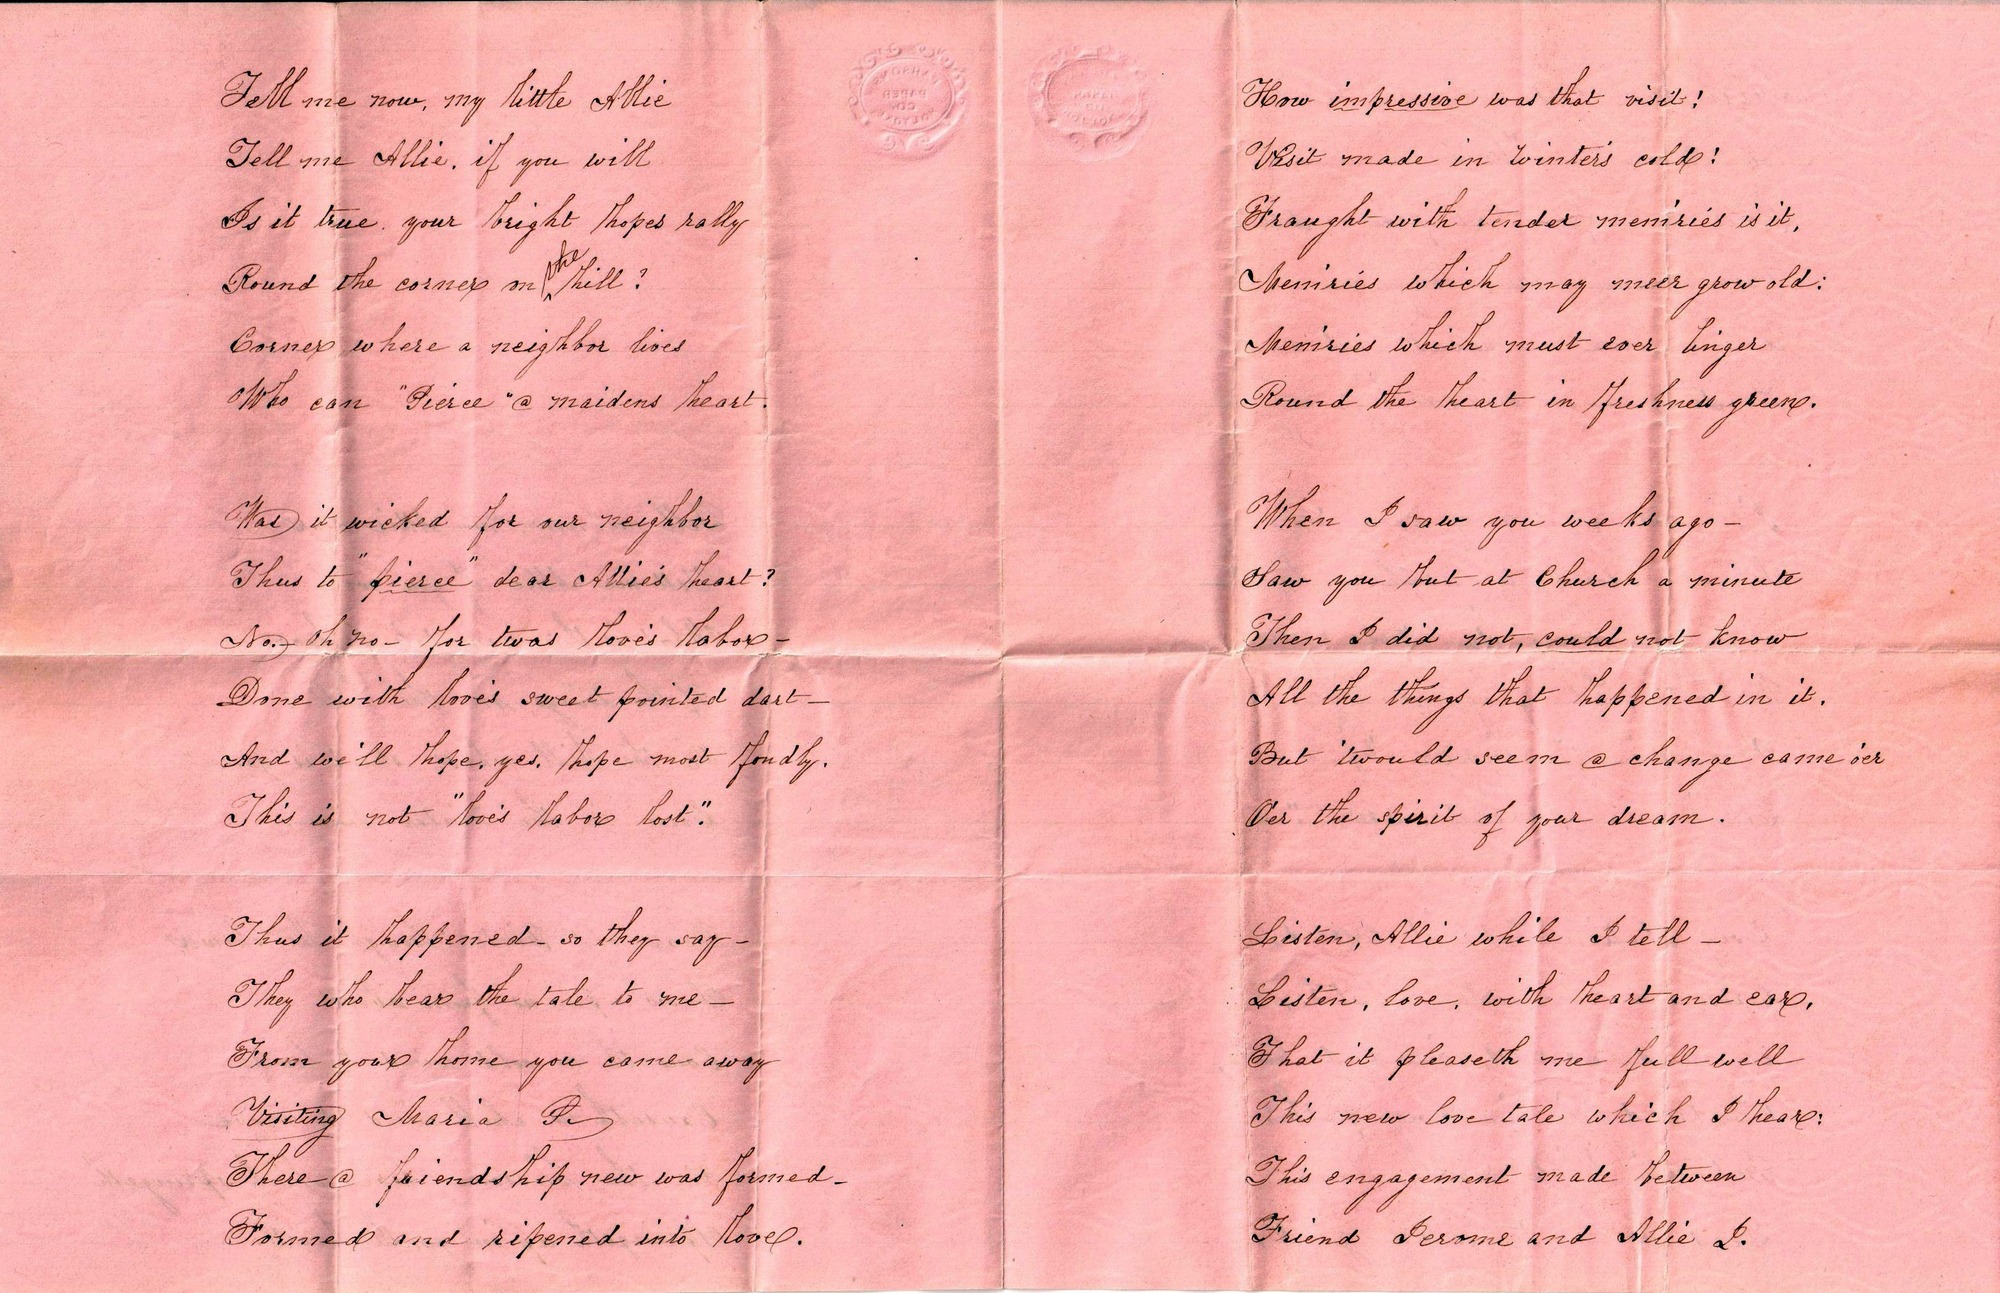 Tell me now, my little Allie
Tell me Allie, if you will
Is it true, your bright hopes rally
Round the corner on the hill?
Corner where a neighbor lives
Who can "Pierce" a maidens heart.
Was it wicked for our neighbor
Thus to "pierce" dear Allie's heart?
No. Oh no – for twas love's labor –
Done with love's sweet pointed dart –
And we'll hope, yes, hope most fondly,
This is not "love's labor lost".
Thus it happened – so they say –
They who bear the tale to me –
From your home you came away
Visiting Maria P.
There a friendship new was formed –
Formed and ripened into love.
How impressive was that visit!
Visit made in Winter's cold!
Fraught with tender mem'ries is it,
Mem'ries which may ne'er grow old:
Mem'ries which must ever linger
Round the heart in freshness green.
When I saw you weeks ago –
Saw you but at Church a minute
Then I did not, could not know
All the things that happened in it.
But 'twould seem a change came o'er
O'er the spirit of your dream.
Listen, Allie while I tell –
Listen, love, with heart and ear,
That it pleaseth me full well
This new love tale which I hear:
This engagement made between
Friend Jerome and Allie J.